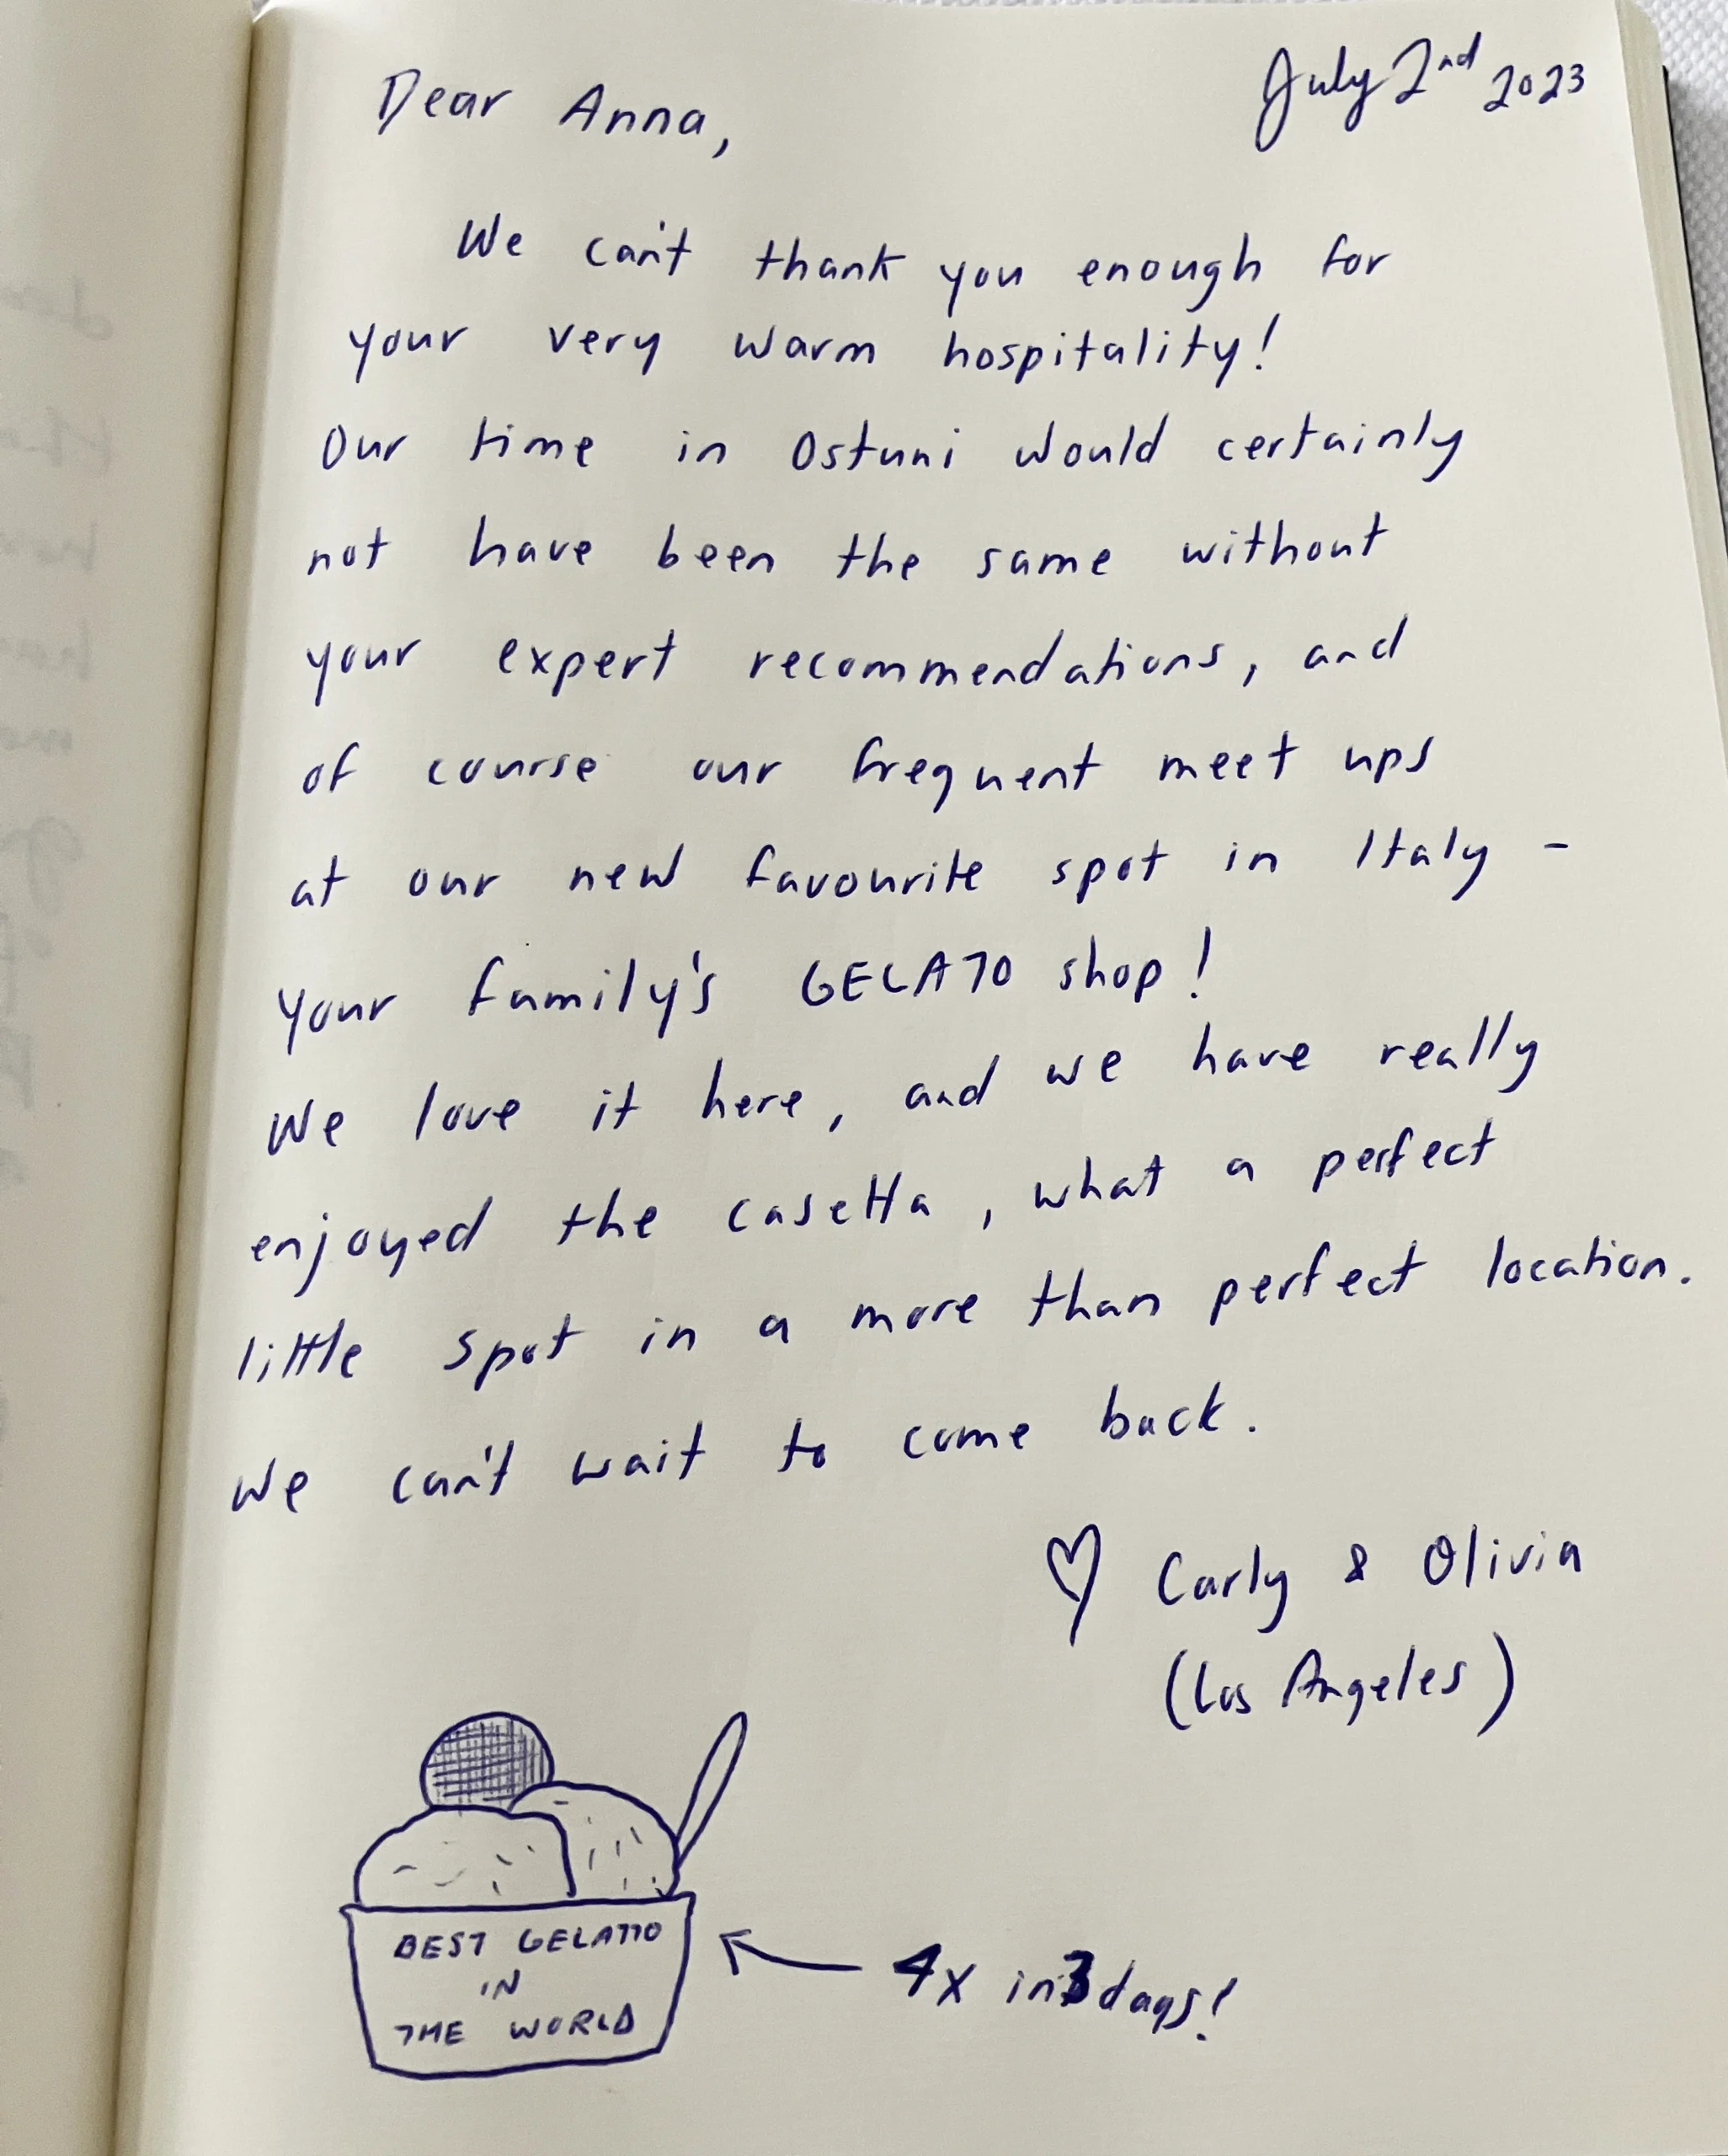 July 2nd 2023
Dear Anna,
We can't thank you enough for
your very warm hospitality!
Our time in Ostuni would certainly
not have been the same without
your expert recommendations, and
of course our frequent meet ups
at our new favourite spot in Italy -
your family's GELATO shop!
We love it here, and we have really
enjoyed the casetta, what a perfect
little spot in a more than perfect location.
We can't wait to come back.
♡ Carly & Olivia
(Los Angeles)
BEST GELATTO
IN
THE WORLD
4x in 3 days!